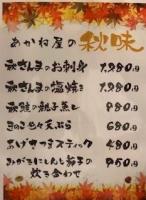 あかね屋の秋味
秋さんまのお刺身 1,280円
秋さんまの塩焼き 1,280円
秋鮭の親子蒸し 980円
きのこ色々天ぷら 680円
あげサツマスティック 480円
みがきにしんと茄子の 950円
炊き合わせ